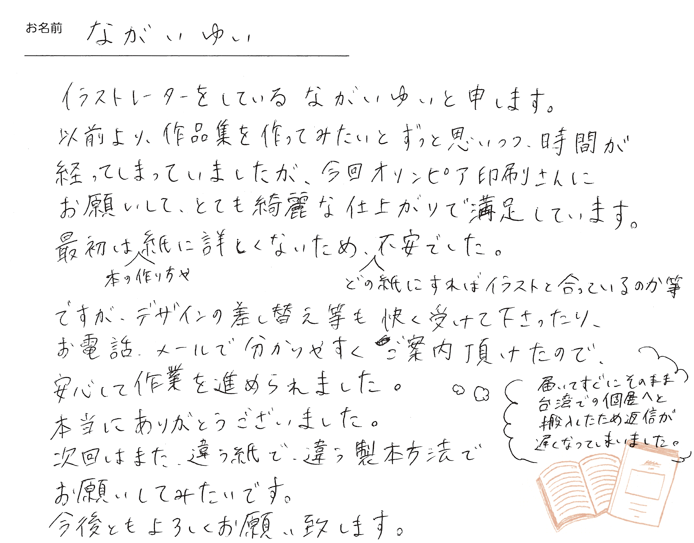 お名前 ながい ゆい
イラストレーターをしている ながいゆいと申します。
以前より、作品集を作ってみたいと ずっと思いつつ、時間が
経ってしまっていましたが、今回オリンピア印刷さんに
お願いして、とても綺麗な仕上がりで満足しています。
最初は紙に詳しくないため、不安でした。
本の作り方や
どの紙にすればイラストと合っているのか等
ですが、デザインの差し替え等も 快く受けて下さったり、
お電話、メールで分かりやすく ご案内頂けたので、
安心して作業を進められました。
本当にありがとうございました。
次回はまた、違う紙で、違う製本方法で
お願いしてみたいです。
今後ともよろしくお願い致します。
届いてすぐにそのまま
台湾での個展へと
搬入したため返信が
遅くなってしまいました。